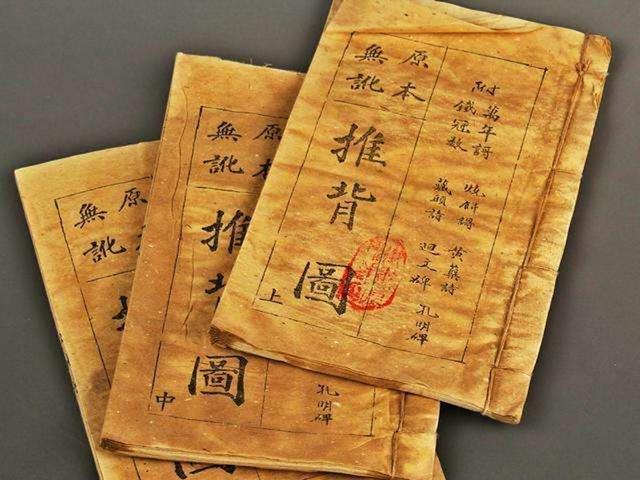 附 萬年謌 燒餅謌 黃蘗詩
鐵冠数 藏頭詩 迴文碑 孔明碑
原本
無訛
推背圖
上
原本
無訛
推背圖
中
孔明碑
原本
無訛